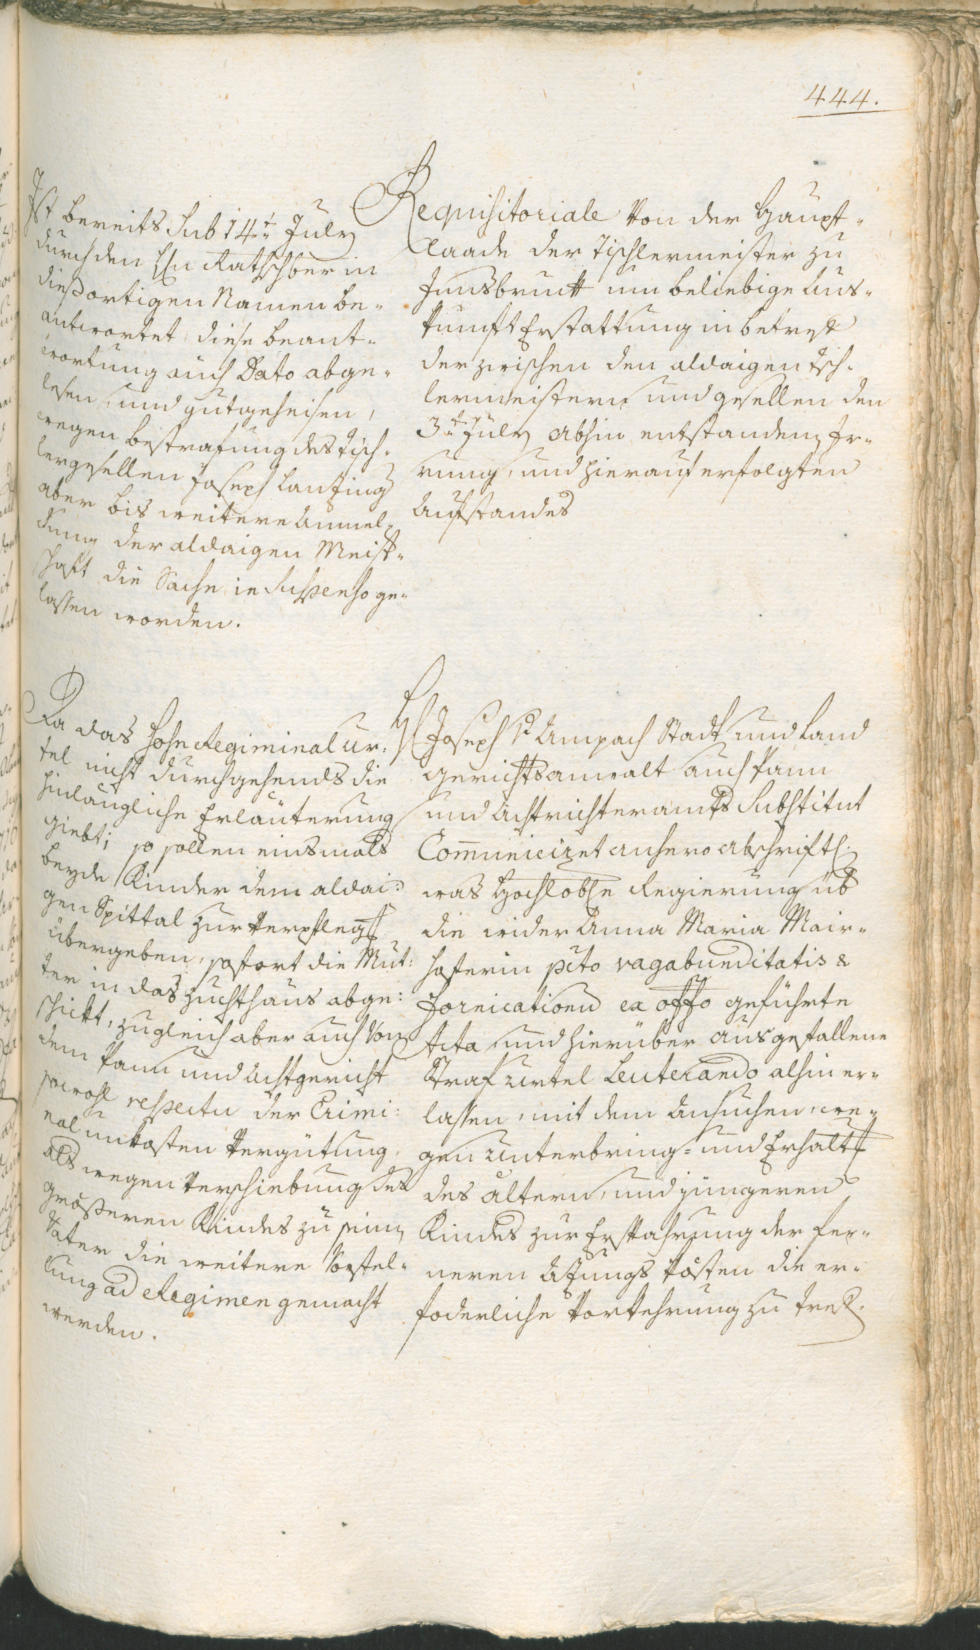 444.
Ist bereits sub 14t July
durch den Hn Rathschber in
dießortigen Namen be-
antwortet, diese beant-
wortung auch Dato abge-
lesen, und gutgeheisen,
wegen bestrafung des Tisch-
lergesellen Joseph Lanzing
aber bis weitere Anmel-
dung der aldaigen Meist-
schaft die Sache in suspenso ge-
lassen worden.
Requisitoriale von der Haupt-
laade der Tischlermeister zu
Innsbruck um beliebige Aus-
kunft Erstattung in betref
der zwischen den aldaigen Tsch-
lermeistern und gesellen den
3t July abhin entstandenen Ir-
rung, und hierauf erfolgten
Aufstandes
Da das hohe Regiminal Ur-
tel nicht durchgehends die
hinlängliche Erläuterung
giebt; so sollen einsmals
beyde Kinder dem aldai-
gen Spittal zur Verpfleg
übergeben, sofort die Mut-
ter in das Zuchthaus abge-
schickt, zugleich aber auch von
dem Bann und Achtgericht
sowohl respectu der Crimi-
nal unkosten Vergütung,
als wegen Verschiebung des
größeren Kindes zu seinem
Vater die weitere Vorstel-
lung ad Regimen gemacht
werden.
H Joseph v Ampach Stadt und Land
gerichtsanwalt auch Bann
und Achtrichteramts Substitut
Communicizet anhero abschriftl.
was Hochlobe Regierung üb
die wider Anna Maria Mair-
hoferin pcto vagabunditatis &
Fornicationis ex offo geführte
Acta und hierüber ausgefallene
Strafurtel Leuterando alhin er-
lassen, mit dem Ansuchen, we-
gen Unterbring- und Erhalt
des ältern, und jüngeren
Kindes zur Ersparung der fer-
neren Azungs kösten die er-
foderliche Vorkehrung zu tref.